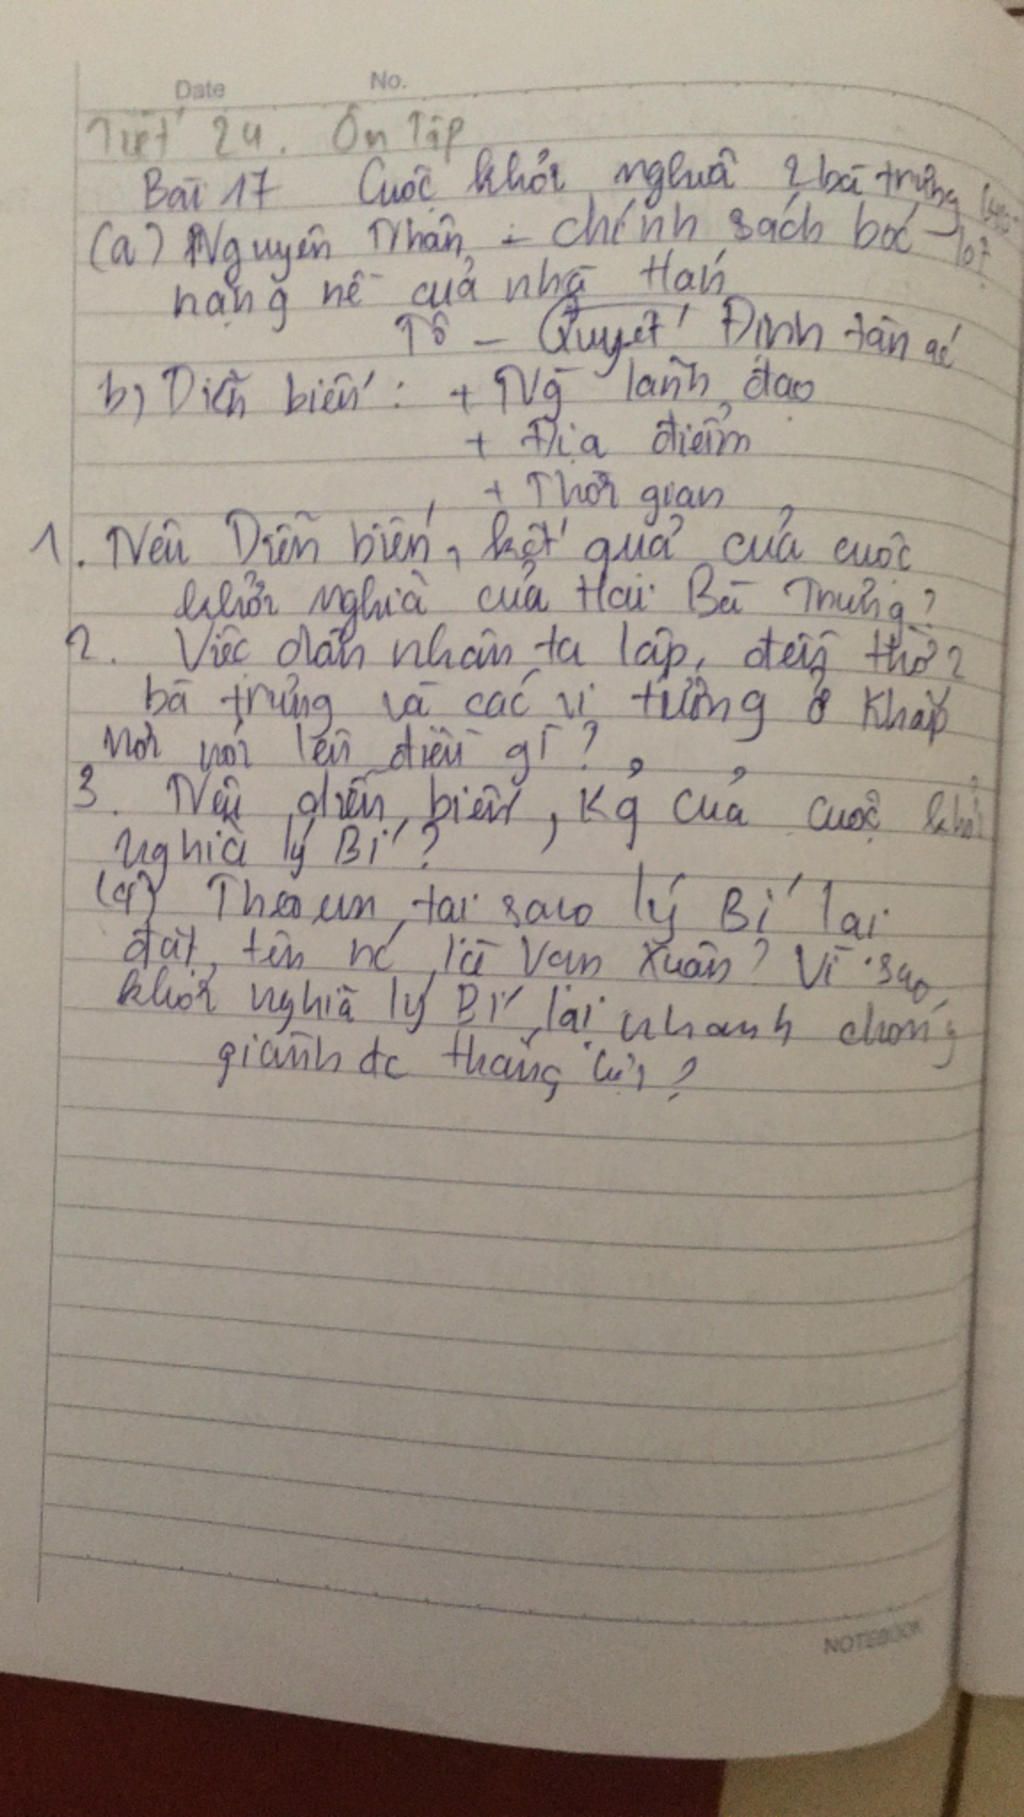 Date No.
Tiết 24. Ôn Tập
Bài 17 Cuộc khởi nghĩa 2 bà trưng
(a) Nguyên Nhân - chính sách bóc lột
nặng nề của nhà Hán
Tô - Quyết Định tàn ác
b) Diễn biến : + Ng lãnh đạo
+ Địa điểm
+ Thời gian
1. Nêu Diễn biến, kết quả của cuộc
khởi nghĩa của Hai Bà Trưng?
2. Việc dân nhân ta lập, đền thờ 2
bà trưng và các vị tướng ở khắp
nơi nói lên điều gì?
3. Nêu diễn biến, Kq của cuộc khởi
nghĩa lý Bí?
(4) Theo em, tại sao lý Bí lại
đặt, tên nc là Vạn Xuân? Vì sao
khởi nghĩa lý Bí lại nhanh chóng
giành đc thắng lợi?
NOTEBOOK